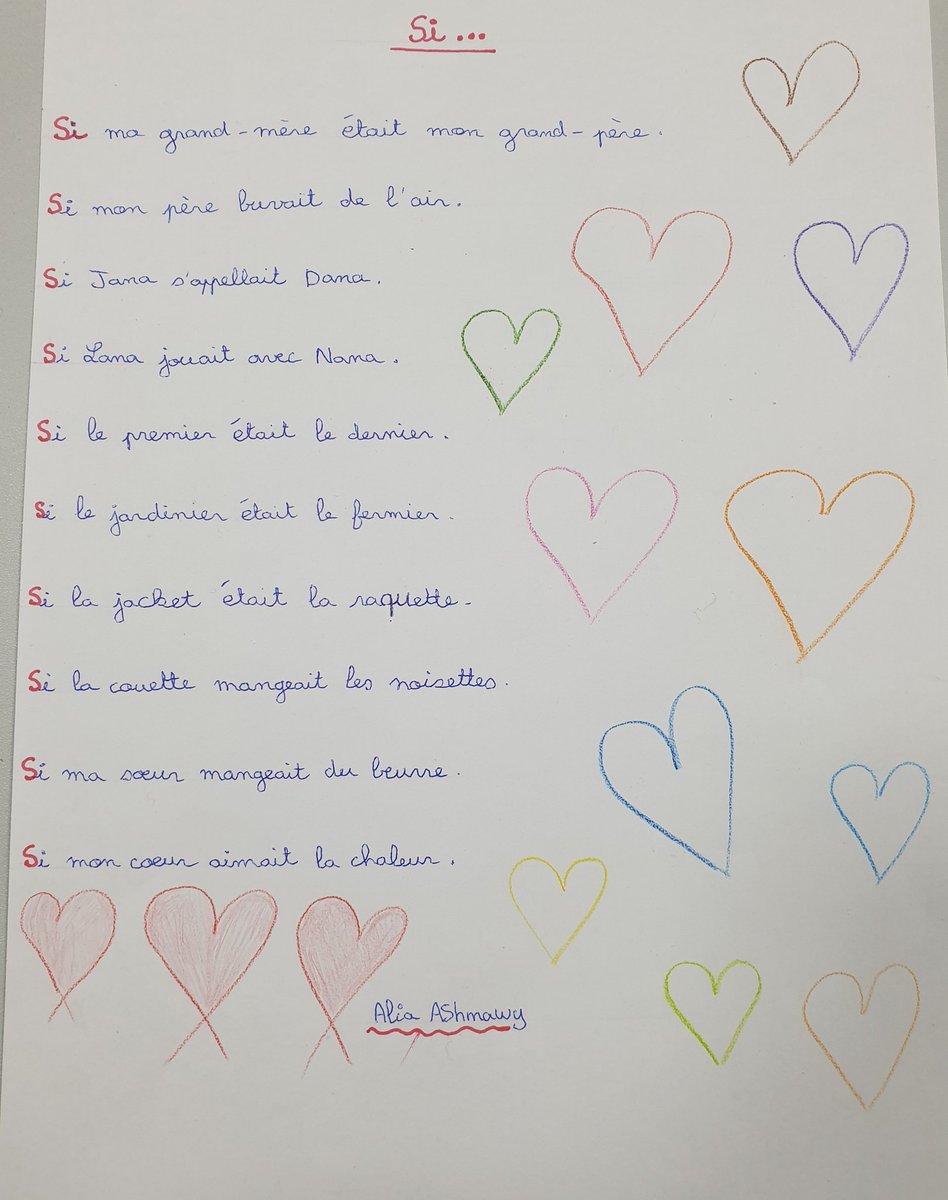 Si ...
Si ma grand-mère était mon grand-père.
Si mon père buvait de l'air.
Si Jana s'appellait Dana.
Si Lana jouait avec Nana.
Si le premier était le dernier.
Si le jardinier était le fermier.
Si la jacket était la raquette.
Si la couette mangeait les noisettes.
Si ma sœur mangeait du beurre.
Si mon cœur aimait la chaleur.
Alia AShmawy